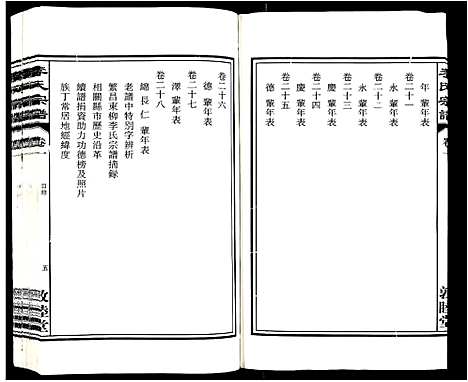 年輩年表
卷二十一
永輩年表
卷二十二
永輩年表
卷二十三
慶輩年表
卷二十四
慶輩年表
卷二十五
德輩年表
卷二十六
德輩年表
卷二十七
澤輩年表
卷二十八
綿長仁輩年表
老譜中特別字辨析
繁昌東柳李氏宗譜摘録
相關縣市歷史沿革
續譜捐資助力功德榜及照片
族丁常居地經緯度
李氏宗譜
卷一
敦睦堂
李氏宗譜
卷一
目錄
五
敦睦堂